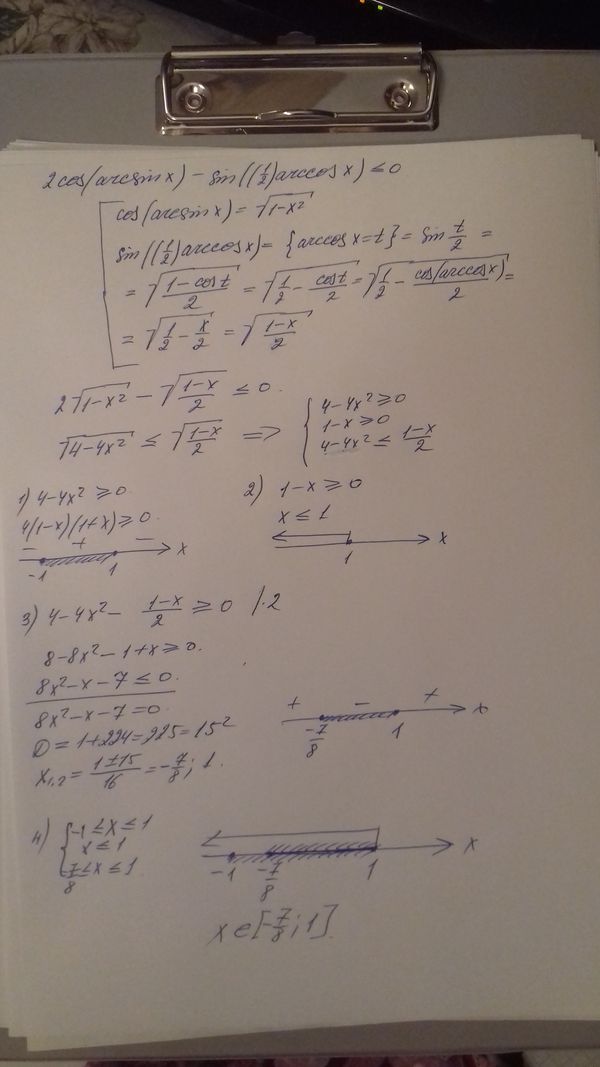 2cos(arcsin x) − sin((1/2)arccos x) ≤ 0
cos(arcsin x) = √(1−x²)
sin((1/2)arccos x) = {arccos x = t} = sin t/2 =
= √((1−cos t)/2) = √(1/2 − cos t/2) = √(1/2 − cos(arccos x)/2) =
= √(1/2 − x/2) = √((1−x)/2)
2√(1−x²) − √((1−x)/2) ≤ 0.
√(4−4x²) ≤ √((1−x)/2) => { 4−4x² ≥ 0
1−x ≥ 0
4−4x² ≤ (1−x)/2
1) 4−4x² ≥ 0.
4(1−x)(1+x) ≥ 0.
− + − x
−1 1
2) 1−x ≥ 0
x ≤ 1
x
1
3) 4−4x² − (1−x)/2 ≥ 0 /·2
8−8x²−1+x ≥ 0.
8x²−x−7 ≤ 0.
8x²−x−7 = 0.
D = 1+224 = 225 = 15²
x1,2 = (1±15)/16 = −7/8; 1.
+ − + x
−7/8 1
4) { −1 ≤ x ≤ 1
x ≤ 1
−7/8 ≤ x ≤ 1
x
−1 −7/8 1
x ∈ [−7/8; 1].